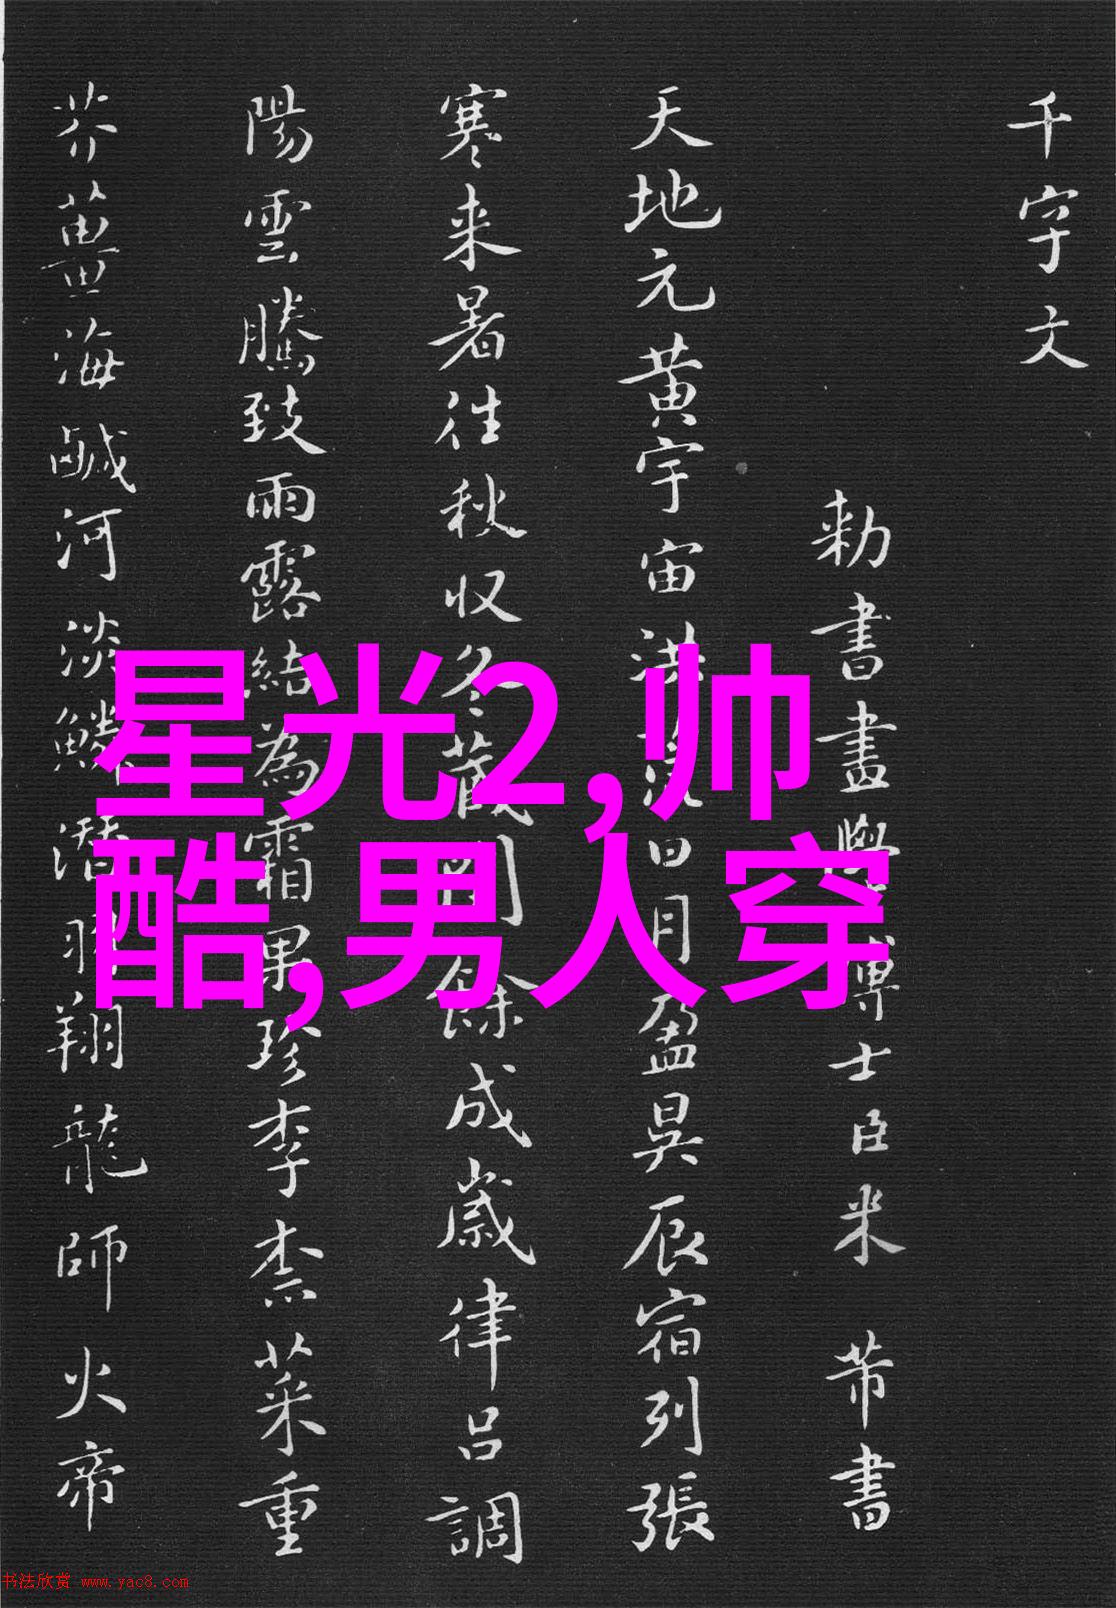 千字文
勅書畫學博士臣米芾書
天地元黄宇宙洪荒日月盈昃辰宿列張
寒来暑往秋収冬蔵閏餘成嵗律吕調
陽雲騰致雨露結為霜果珍李柰菜重
芥薑海鹹河淡鱗潛羽翔龍師火帝
星光2,帅
酷,男人穿
书法欣赏 www.yac8.com